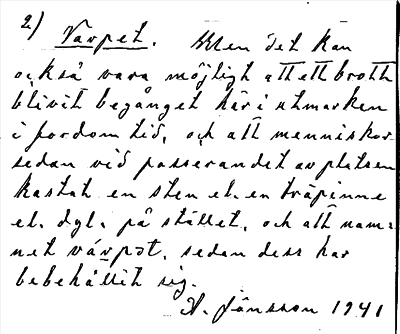 2)
Varpet. Men det kan
också vara möjligt att ett brott
blivit begånget här i utmarken
i fordom tid, och att menniskor
sedan vid passerandet av platsen
kastat en sten el. en träpinne
el. dyl. på stället, och att nam=
net vávpət, sedan dess har
bebehållit sig.
A. Jönsson 1941